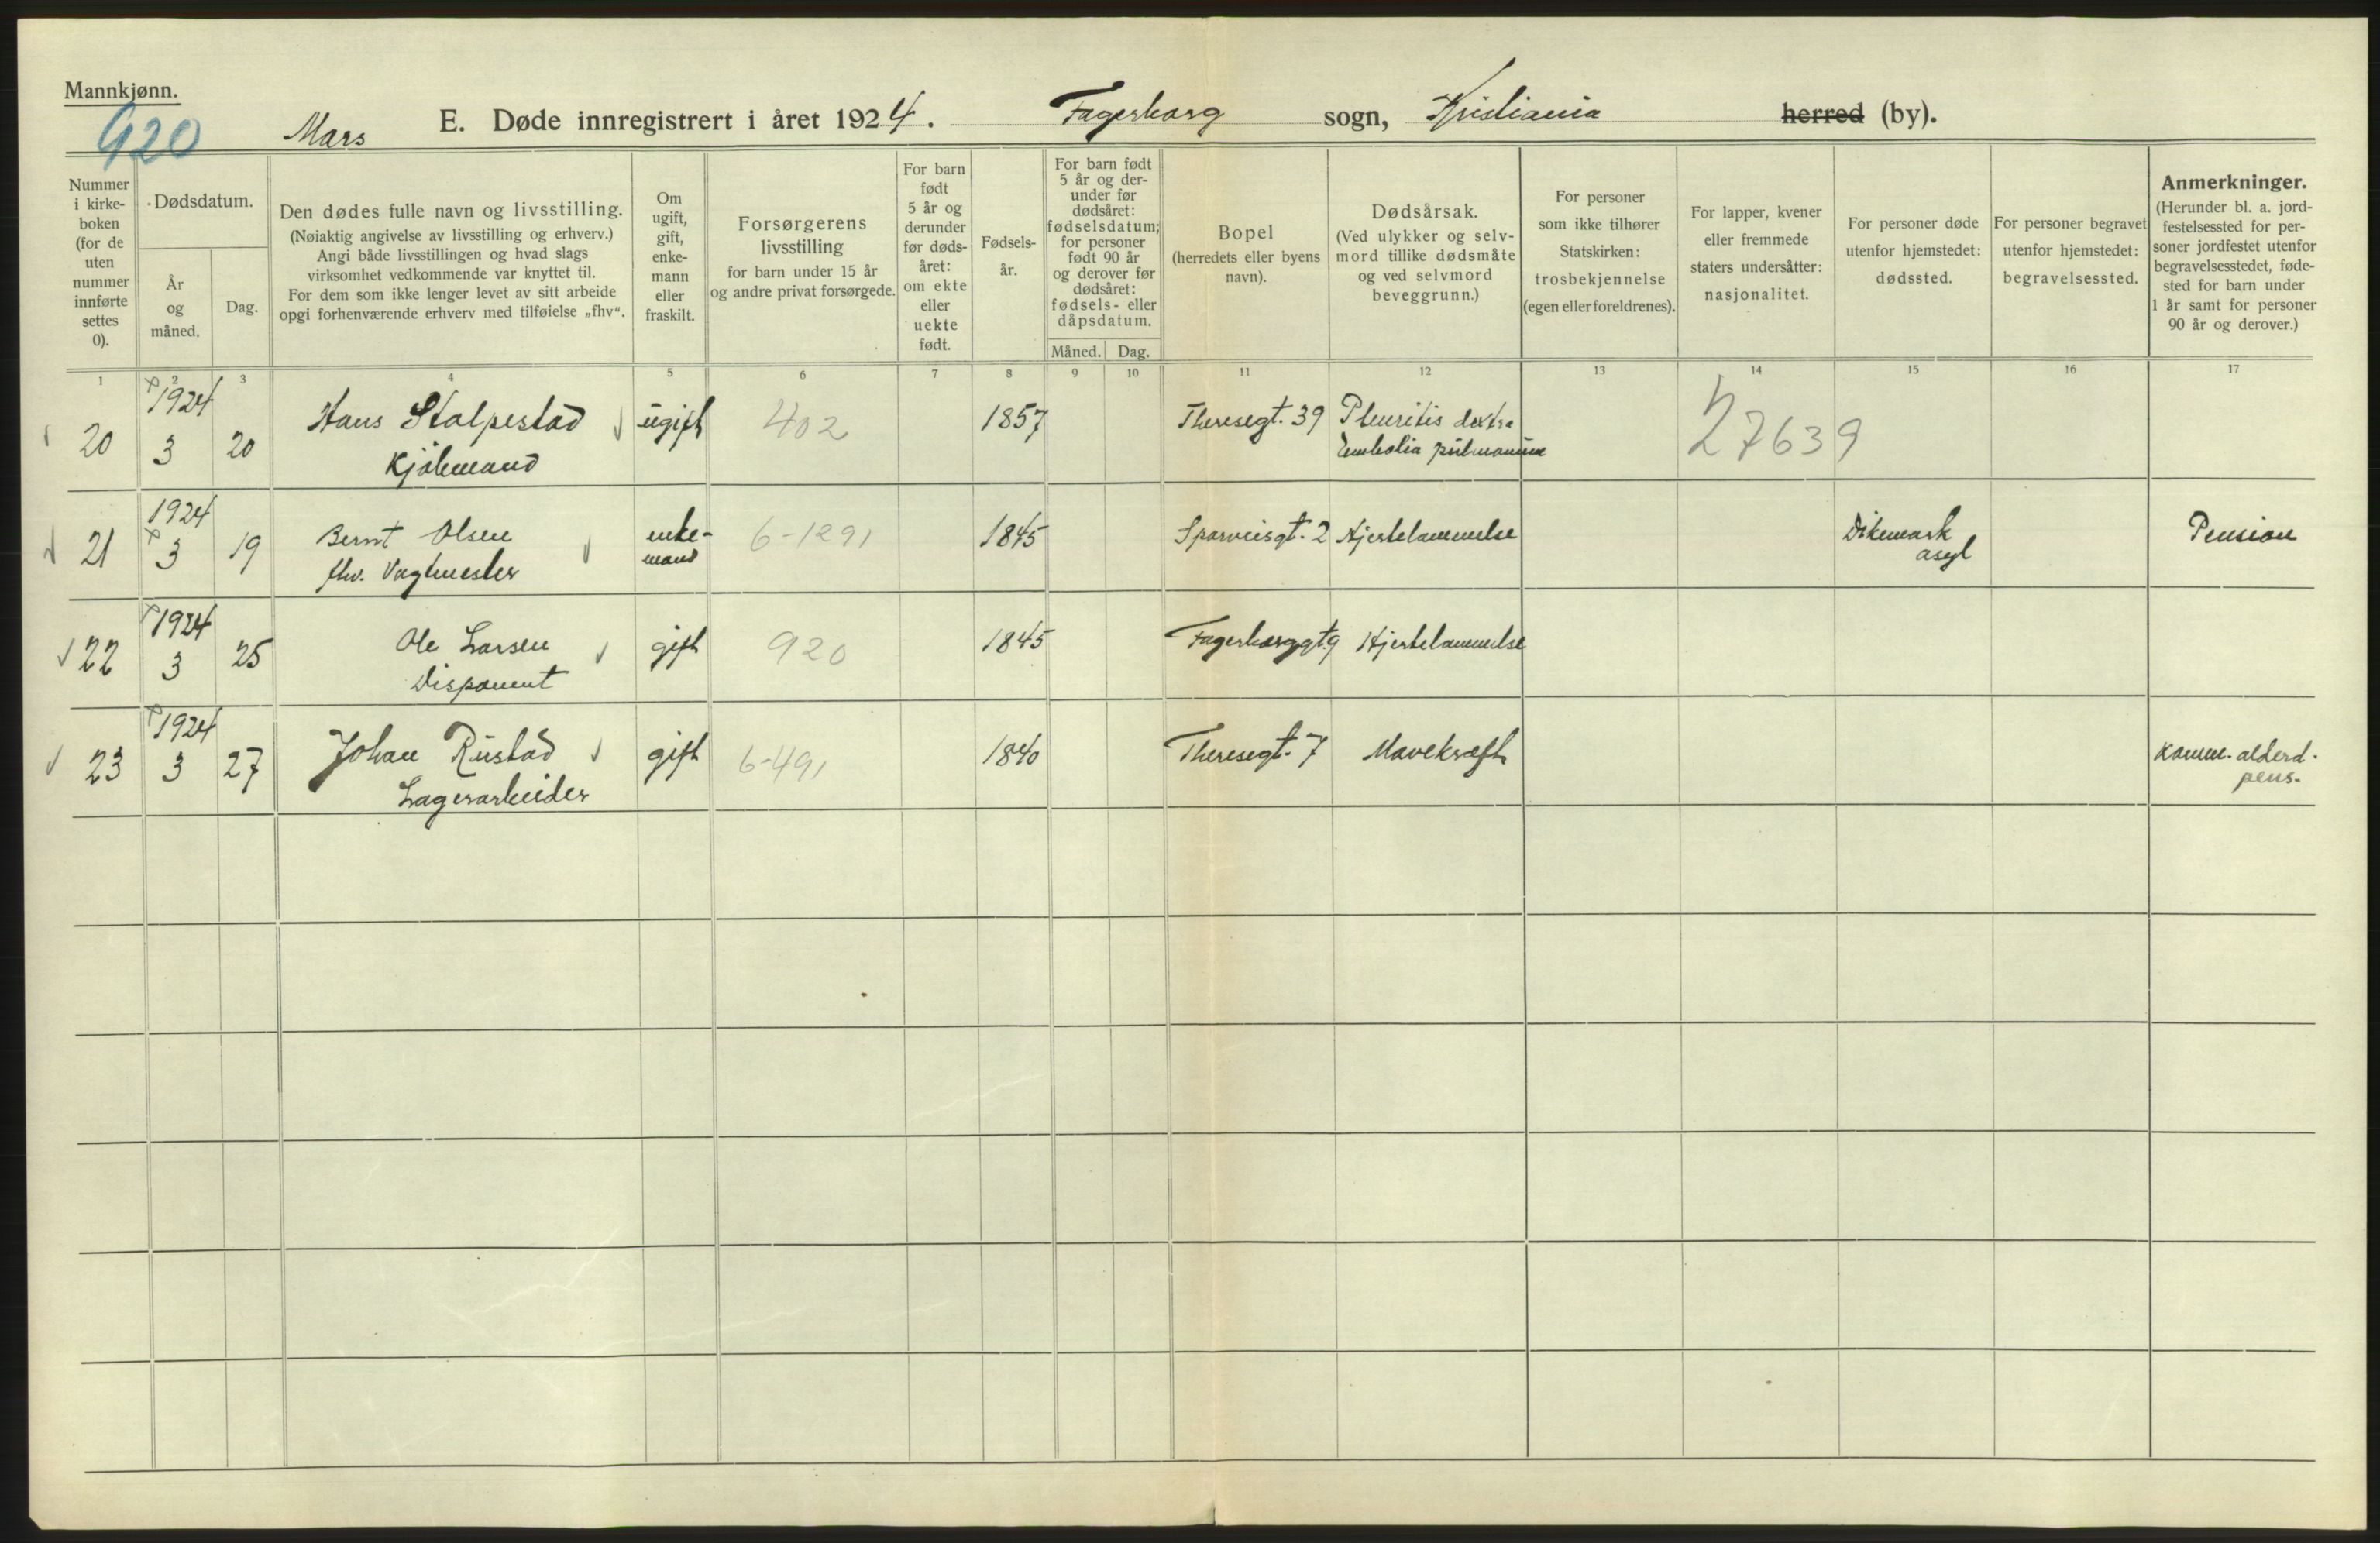 Mannkjønn.
920
Mars
E. Døde innregistrert i året 1924. Fagerborg sogn, Kristiania herred (by).
Nummer i kirke-boken (for de uten nummer innførte settes 0).
Dødsdatum.
År og måned.
Dag.
Den dødes fulle navn og livsstilling.
(Nøiaktig angivelse av livsstilling og erhverv.)
Angi både livsstillingen og hvad slags
virksomhet vedkommende var knyttet til.
For dem som ikke lenger levet av sitt arbeide
opgi forhenværende erhverv med tilføielse „fhv“.
Om ugift, gift, enke-mann eller fraskilt.
Forsørgerens
livsstilling
for barn under 15 år
og andre privat forsørgede.
For barn født 5 år og derunder før døds-året: om ekte eller uekte født.
Fødsels-år.
For barn født 5 år og der-under før dødsåret: fødselsdatum; for personer født 90 år og derover før dødsåret: fødsels- eller dåpsdatum.
Måned. Dag.
Bopel
(herredets eller byens navn).
Dødsårsak.
(Ved ulykker og selv-mord tillike dødsmåte og ved selvmord beveggrunn.)
For personer som ikke tilhører Statskirken: trosbekjennelse (egen eller foreldrenes).
For lapper, kvener eller fremmede staters undersåtter: nasjonalitet.
For personer døde utenfor hjemstedet: dødssted.
For personer begravet utenfor hjemstedet: begravelsessted.
Anmerkninger.
(Herunder bl. a. jord-festelsessted for per-soner jordfestet utenfor begravelsesstedet, føde-sted for barn under 1 år samt for personer 90 år og derover.)
1 2 3 4 5 6 7 8 9 10 11 12 13 14 15 16 17
20 1924 3 20 Hans Stalpestad ugift 402 1857 Theresegt. 39 Pleuritis dextra 27639
Kjølmand Embolia pulmonum
21 1924 3 19 Bernt Olsen enke- 6-1291 1845 Sporveisgt. 2 Hjertelammelse Dikemark Pension
fhv. Vagtmester mand asyl
22 1924 3 25 Ole Larsen gift 920 1845 Fagerborggt. 9 Hjertelammelse
Disponent
23 1924 3 27 Johan Rustad gift 6-491 1840 Theresegt. 7 Mavekræft Komm. alderd.
Lagerarbeider pens.